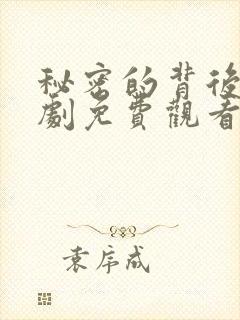 秘密的背後
劇免費觀看
袁序成